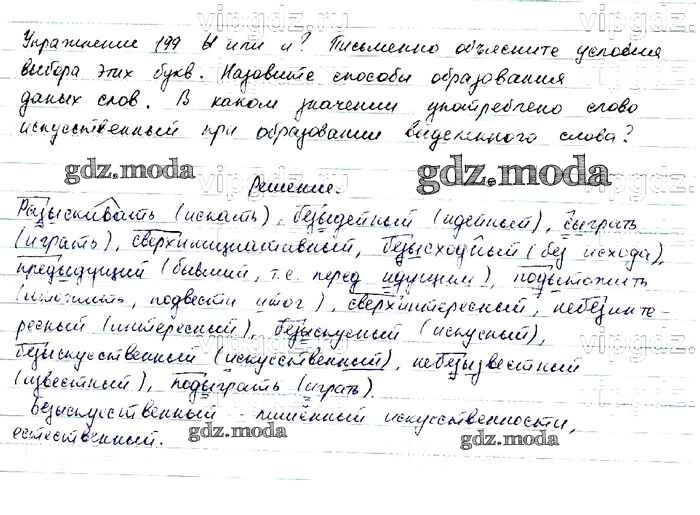 Упражнение 199 Ы или и? Письменно объясните условия
выбора этих букв. Назовите способы образования
даных слов. В каком значении употреблено слово
искусственный при образовании выделенного слова?
gdz.moda
gdz.moda
Решение.
Разыскивать (искать), безыдейный (идейный), сыграть
(играть), сверхинициативный, безысходный (без исхода),
предыдущий (бывший, т.е. перед идущим), подытожить
(итожить, подвести итог), сверхинтересный, небезинте-
ресный (интересный), безыскусный (искусный),
безыскусственный (искусственный), небезызвестный
(известный), подыграть (играть).
Безыскусственный - лишённый искусственности,
естественный.
gdz.moda
gdz.moda